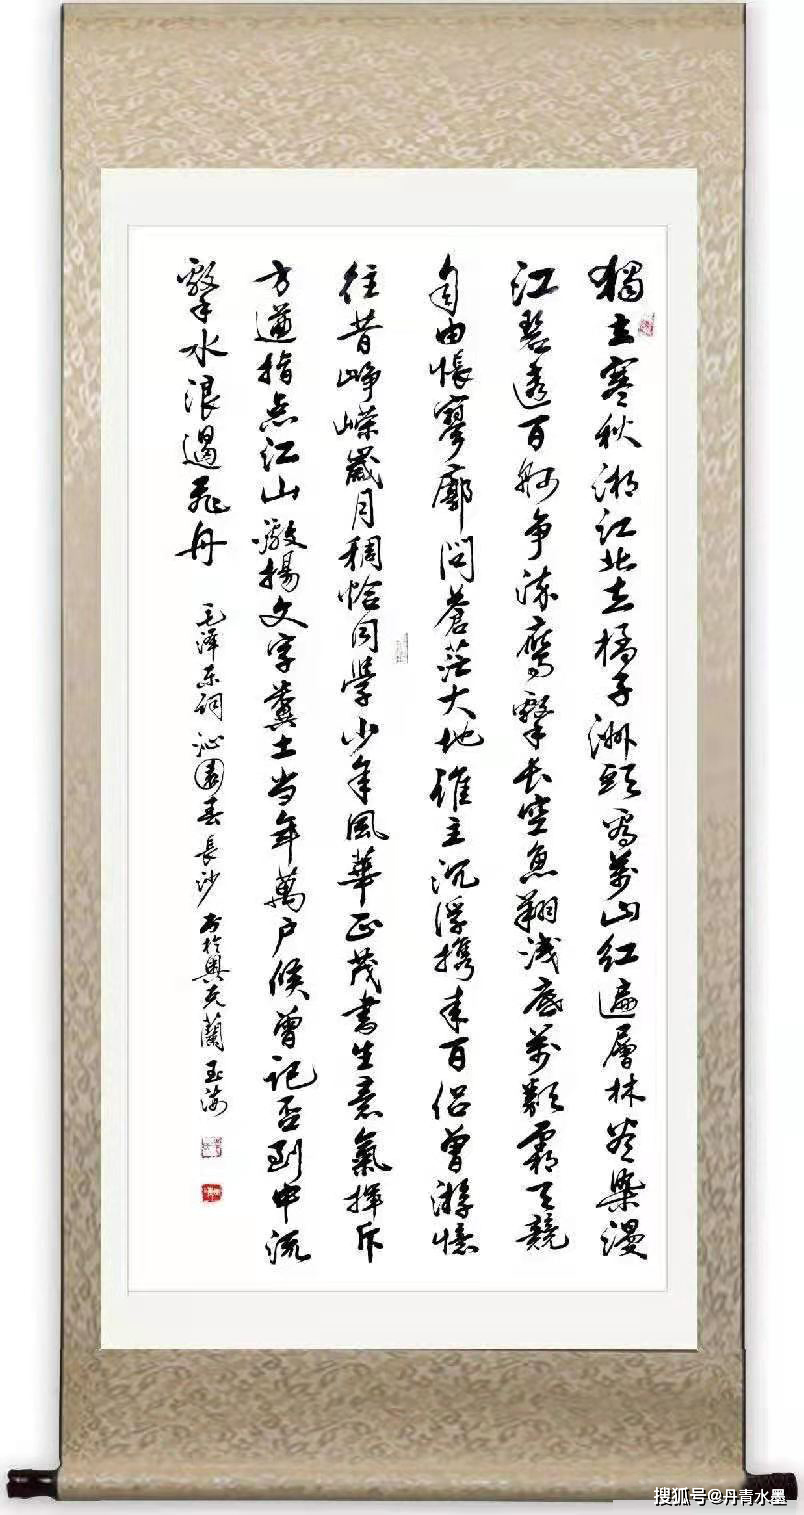 獨立寒秋湘江北去橘子洲頭看萬山红遍層林尽染漫
江碧透百舸争流鹰擊长空魚翔浅底萬類霜天競
自由悵寥廓問蒼茫大地誰主沉浮携来百侣曾游憶
往昔峥嵘歲月稠恰同學少年風華正茂書生意氣揮斥
方遒指点江山激揚文字糞土当年萬户侯曾記否到中流
擊水浪遏飛舟
毛泽东词沁園春長沙书於奥克蘭
搜狐号@丹青水墨